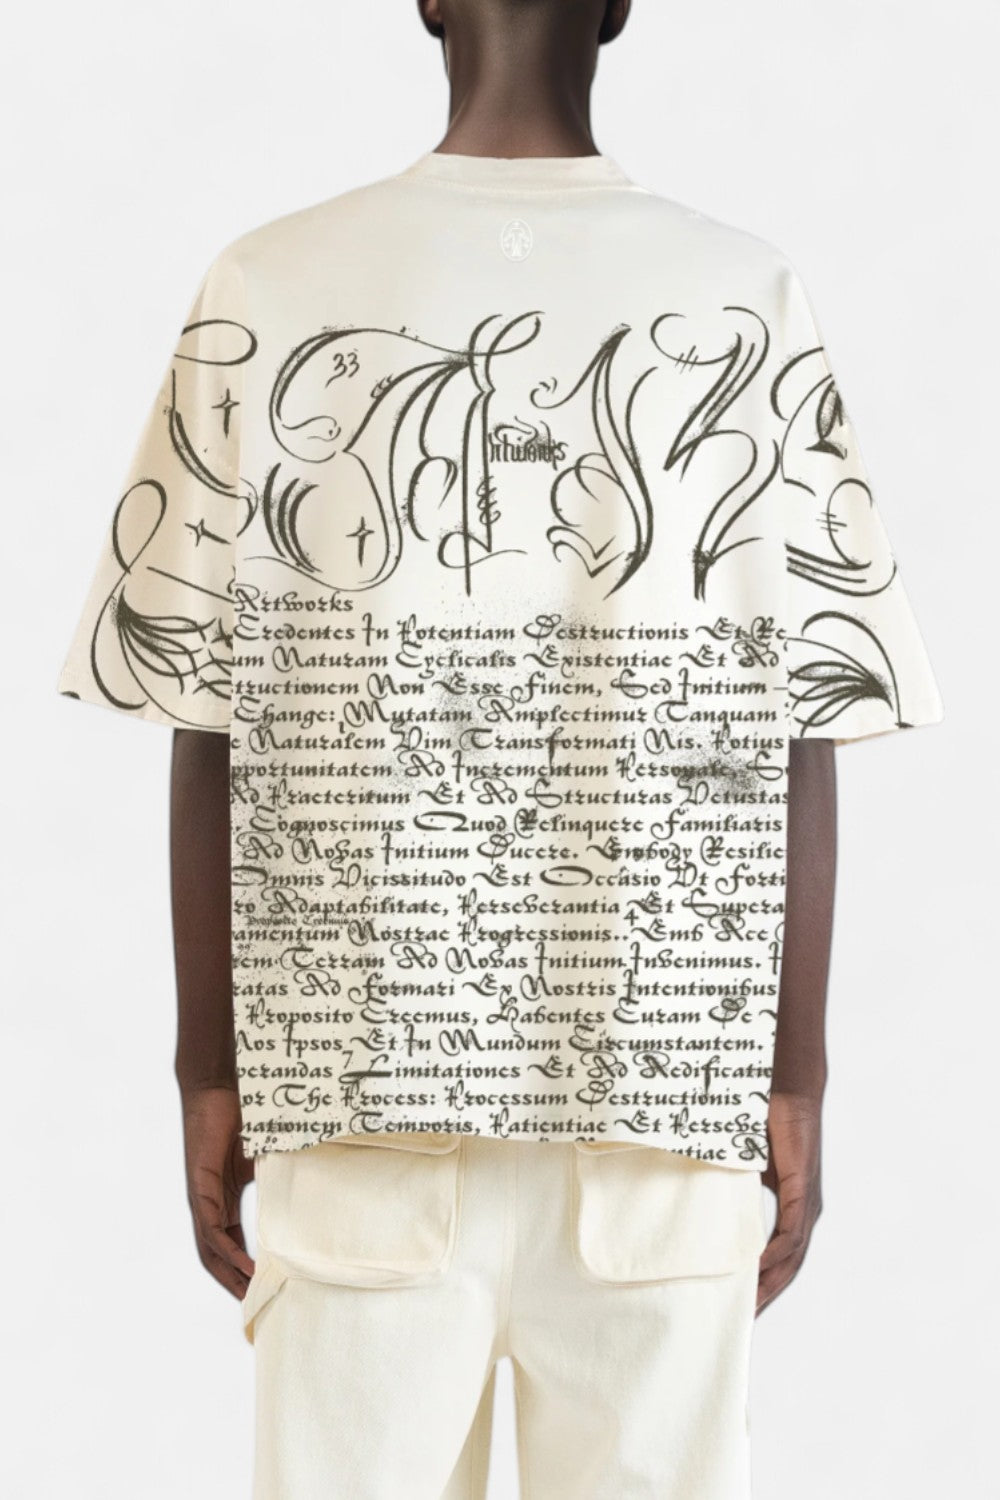 33
Artworks
Artworks
Credentes In Potentiam Destructionis Et Re
um Naturam Cyclicalis Existentiae Et Ad
tructionem Non Esse Finem, Sed Initium –
Change: Mutatam Amplectimur Tanquam
e Naturalem Vim Transformati Nis. Potius
pportunitatem Ad Incrementum Personale, S
Ad Praeteritum Et Ad Structuras Vetustas
. Cognoscimus Quod Relinquere Familiaris
Ad Novas Initium Ducere. Embody Resilie
Omnis Vicissitudo Est Occasio Ut Forti
ro Adaptabilitate, Perseverantia Et Supera
4
amentum Nostrae Progressionis.. Emb Ace
rem Terram Ad Novas Initium Invenimus. I
ratas Ad Formari Ex Nostris Intentionibus
Proposito Creemus, Habentes Curam De
Nos Ipsos, Et In Mundum Circumstantem.
perandas 7 Limitationes Et Ad Aedificatio
or The Process: Processum Destructionis
nationem Temporis, Patientiae Et Persever
ntiae A